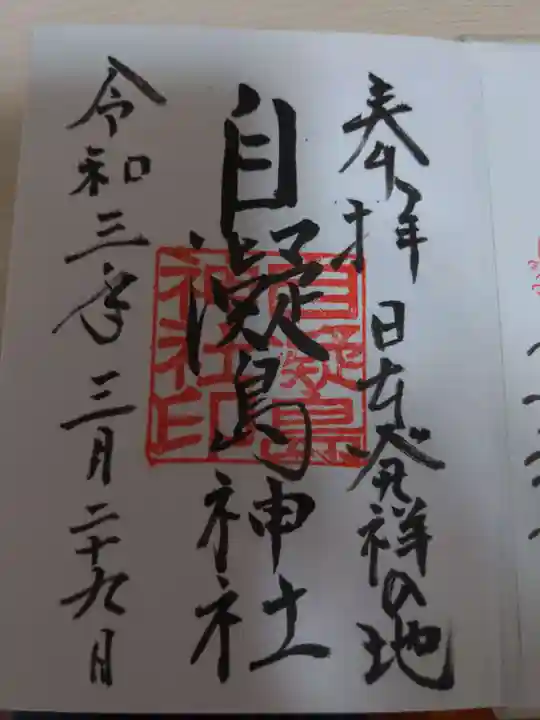 奉拝
日本発祥の地
自凝島神社
自凝島
神社印
令和三年三月二十九日